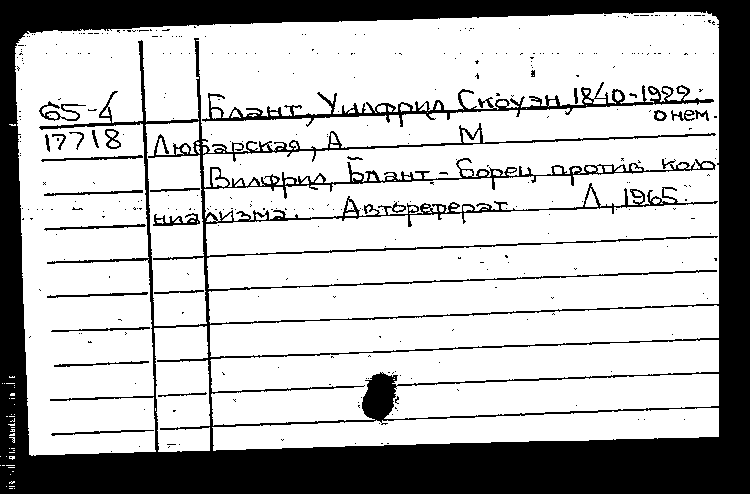 65-4 Блант, Уилфрид Скоуэн, 1840-1922.
о нем.
17718 Любарская, А М
Вилфрид Блант - борец против коло-
ниализма. Автореферат. Л, 1965.